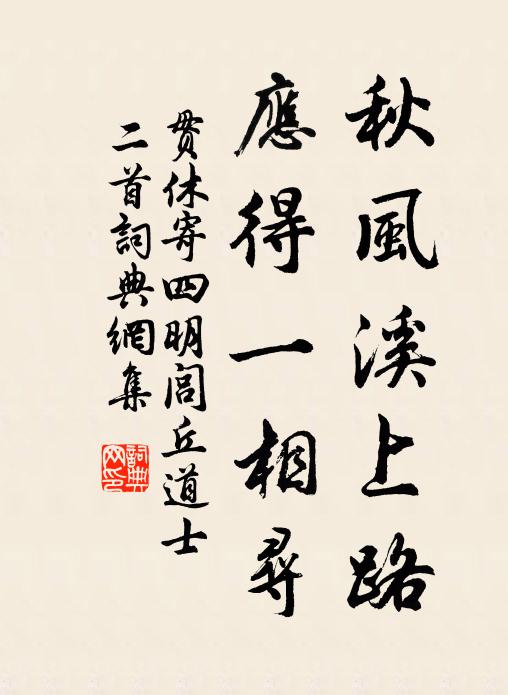 秋風溪上路
應得一相尋
貫休寄四明閭丘道士
二首詞典網集
詞典網印